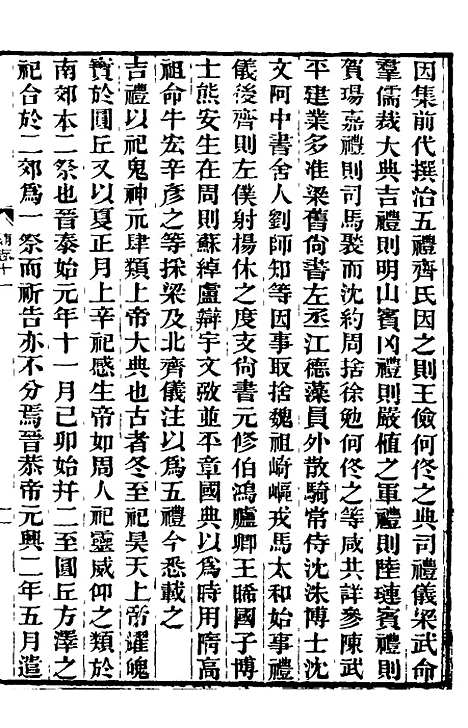 因集前代撰治五禮齊氏因之則王儉何佟之典司禮儀梁武命
羣儒裁大典吉禮則明山賓凶禮則嚴植之軍禮則陸璉賓禮則
賀瑒嘉禮則司馬褧而沈約周捨徐勉何佟之等咸共詳參陳武
平建業多准梁舊尙書左丞江德藻員外散騎常侍沈洙博士沈
文阿中書舍人劉師知等因事取捨魏祖崎嶇戎馬太和始事禮
儀後齊則左僕射楊休之度支尙書元修伯鴻臚卿王晞國子博
士熊安生在周則蘇綽盧辯宇文㢸並平章國典以爲時用隋高
祖命牛宏辛彥之等採梁及北齊儀注以爲五禮今悉載之
吉禮以祀鬼神示肆類上帝大典也古者冬至祀昊天上帝耀魄
寶於圓丘又以夏正月上辛祀感生帝如周人祀靈威仰之類於
南郊本二祭也晉泰始元年十一月己卯始幷二至圓丘方澤之
祀合於二郊爲一祭而祈告亦不分焉晉恭帝元興二年五月遣